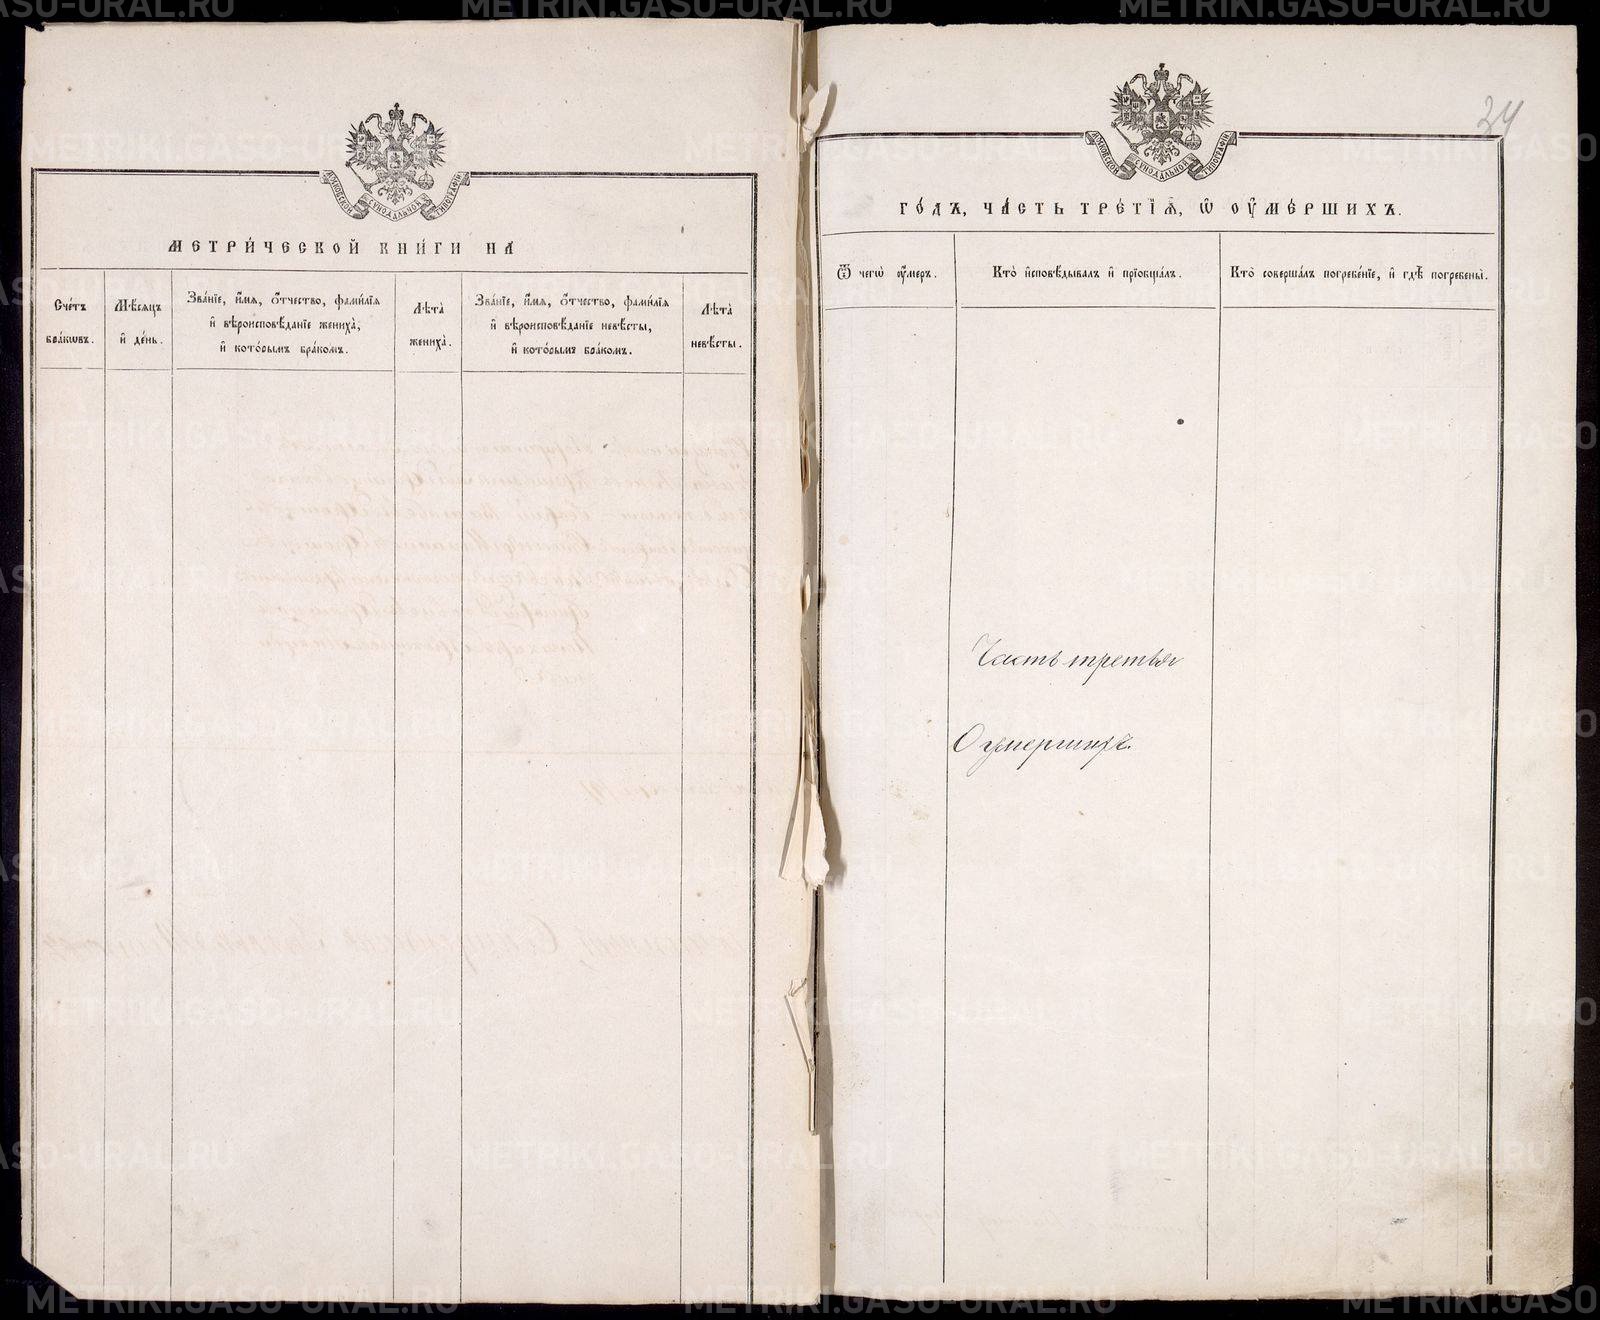 МОСКОВСКОЙ СУНОДАЛЬНОЙ ТИПОГРАФІИ
МЕТРИ́ЧЕСКОЙ КНИ́ГИ НА
Сче́тъ бра́кѡвъ.
Мѣ́сяцъ и҆ де́нь.
Зва́нїе, и҆́мя, ѻ҆́тчество, фами́лїя
и҆ вѣроисповѣ́данїе жениха̀,
и҆ кото́рымъ бра́комъ.
Лѣ́та жениха̀.
Зва́нїе, и҆́мя, ѻ҆́тчество, фами́лїя
и҆ вѣроисповѣ́данїе невѣ́сты,
и҆ кото́рымъ бра́комъ.
Лѣ́та невѣ́сты.
34
МОСКОВСКОЙ СУНОДАЛЬНОЙ ТИПОГРАФІИ
ГО́ДЪ, ЧА́СТЬ ТРЕ́ТЇѦ, Ѽ ОУ҆МЕ́РШИХЪ.
Ѿ чегѡ̀ оу҆́меръ.
Кто̀ и҆сповѣ́дывалъ и҆ прїобща́лъ.
Кто̀ соверша́лъ погребе́нїе, и҆ гдѣ̀ погребены̀.
Часть третья
О умершихъ.
METRIKI.GASO-URAL.RU